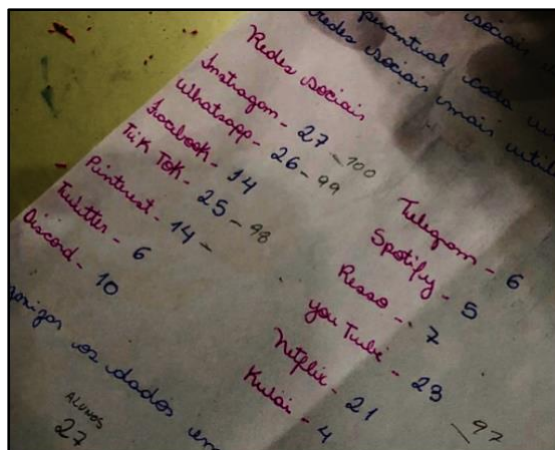 sociais
percentual cada
redes sociais mais
Redes sociais
Instragom - 27 - 100
Whatsapp - 26 - 99
Facebook - 14
TiK ToK - 25 - 98
Pinterest - 14 -
Twitter - 6
Discord - 10
Telegram - 6
Spotify - 5
Resso - 7
you Tube - 23
Netflix - 21 - 97
Kwai - 4
os dados em
ALUNOS
27